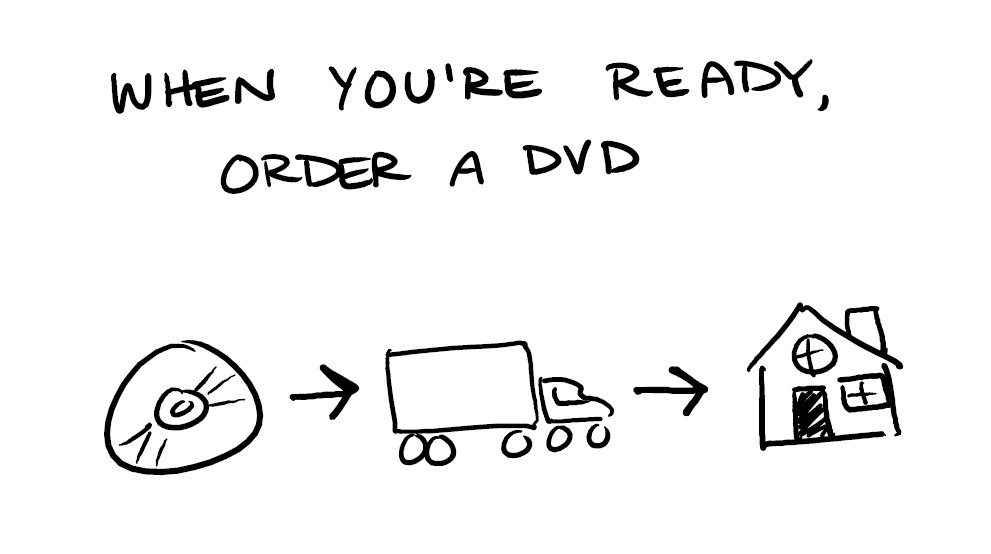 WHEN YOU'RE READY,
ORDER A DVD